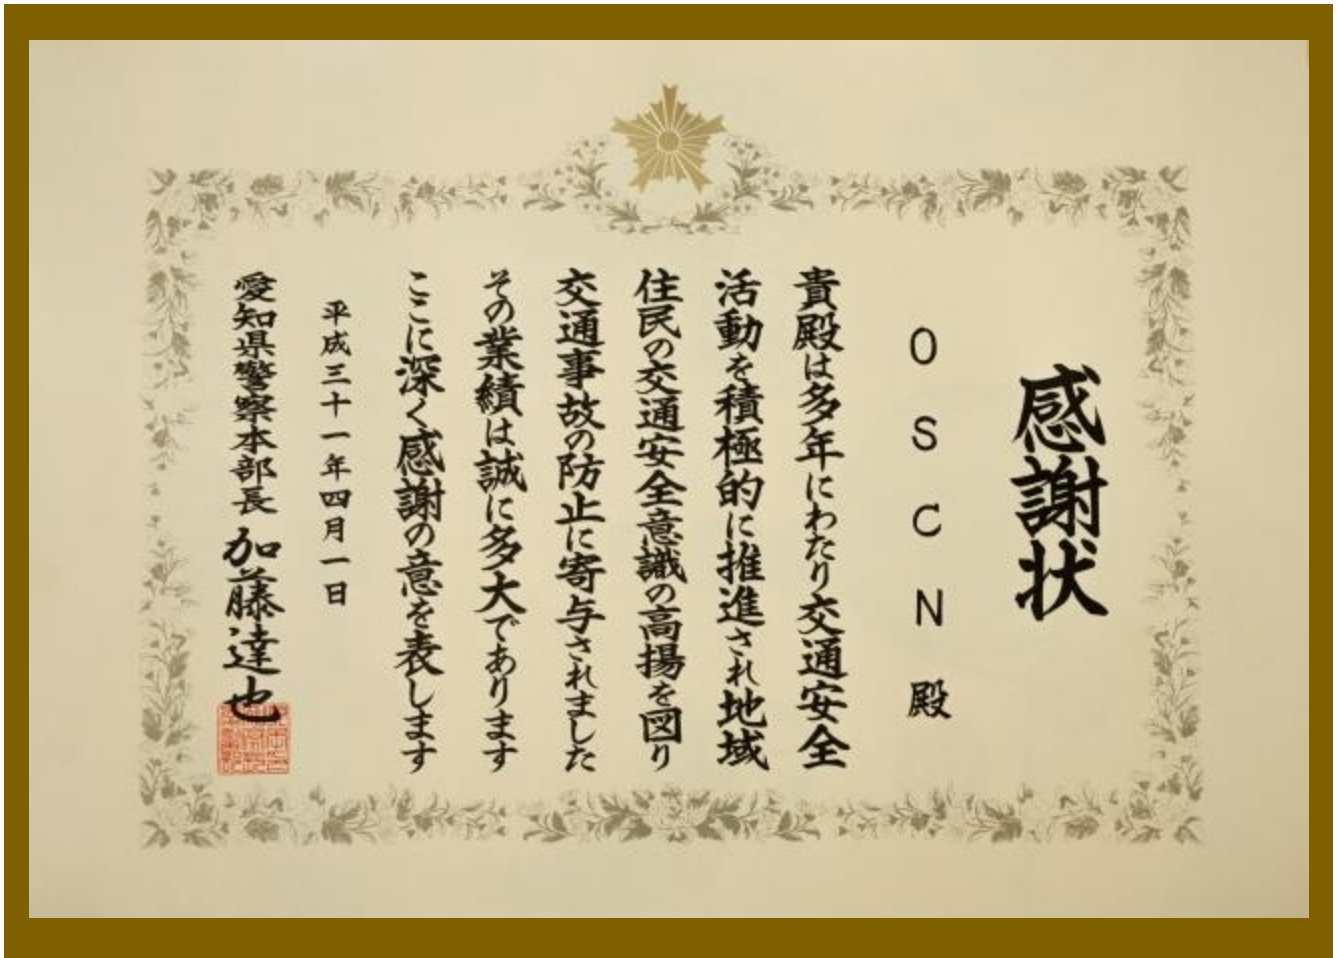 感謝状
OSCN殿
貴殿は多年にわたり交通安全
活動を積極的に推進され地域
住民の交通安全意識の高揚を図り
交通事故の防止に寄与されました
その業績は誠に多大であります
ここに深く感謝の意を表します
平成三十一年四月一日
愛知県警察本部長 加藤達也